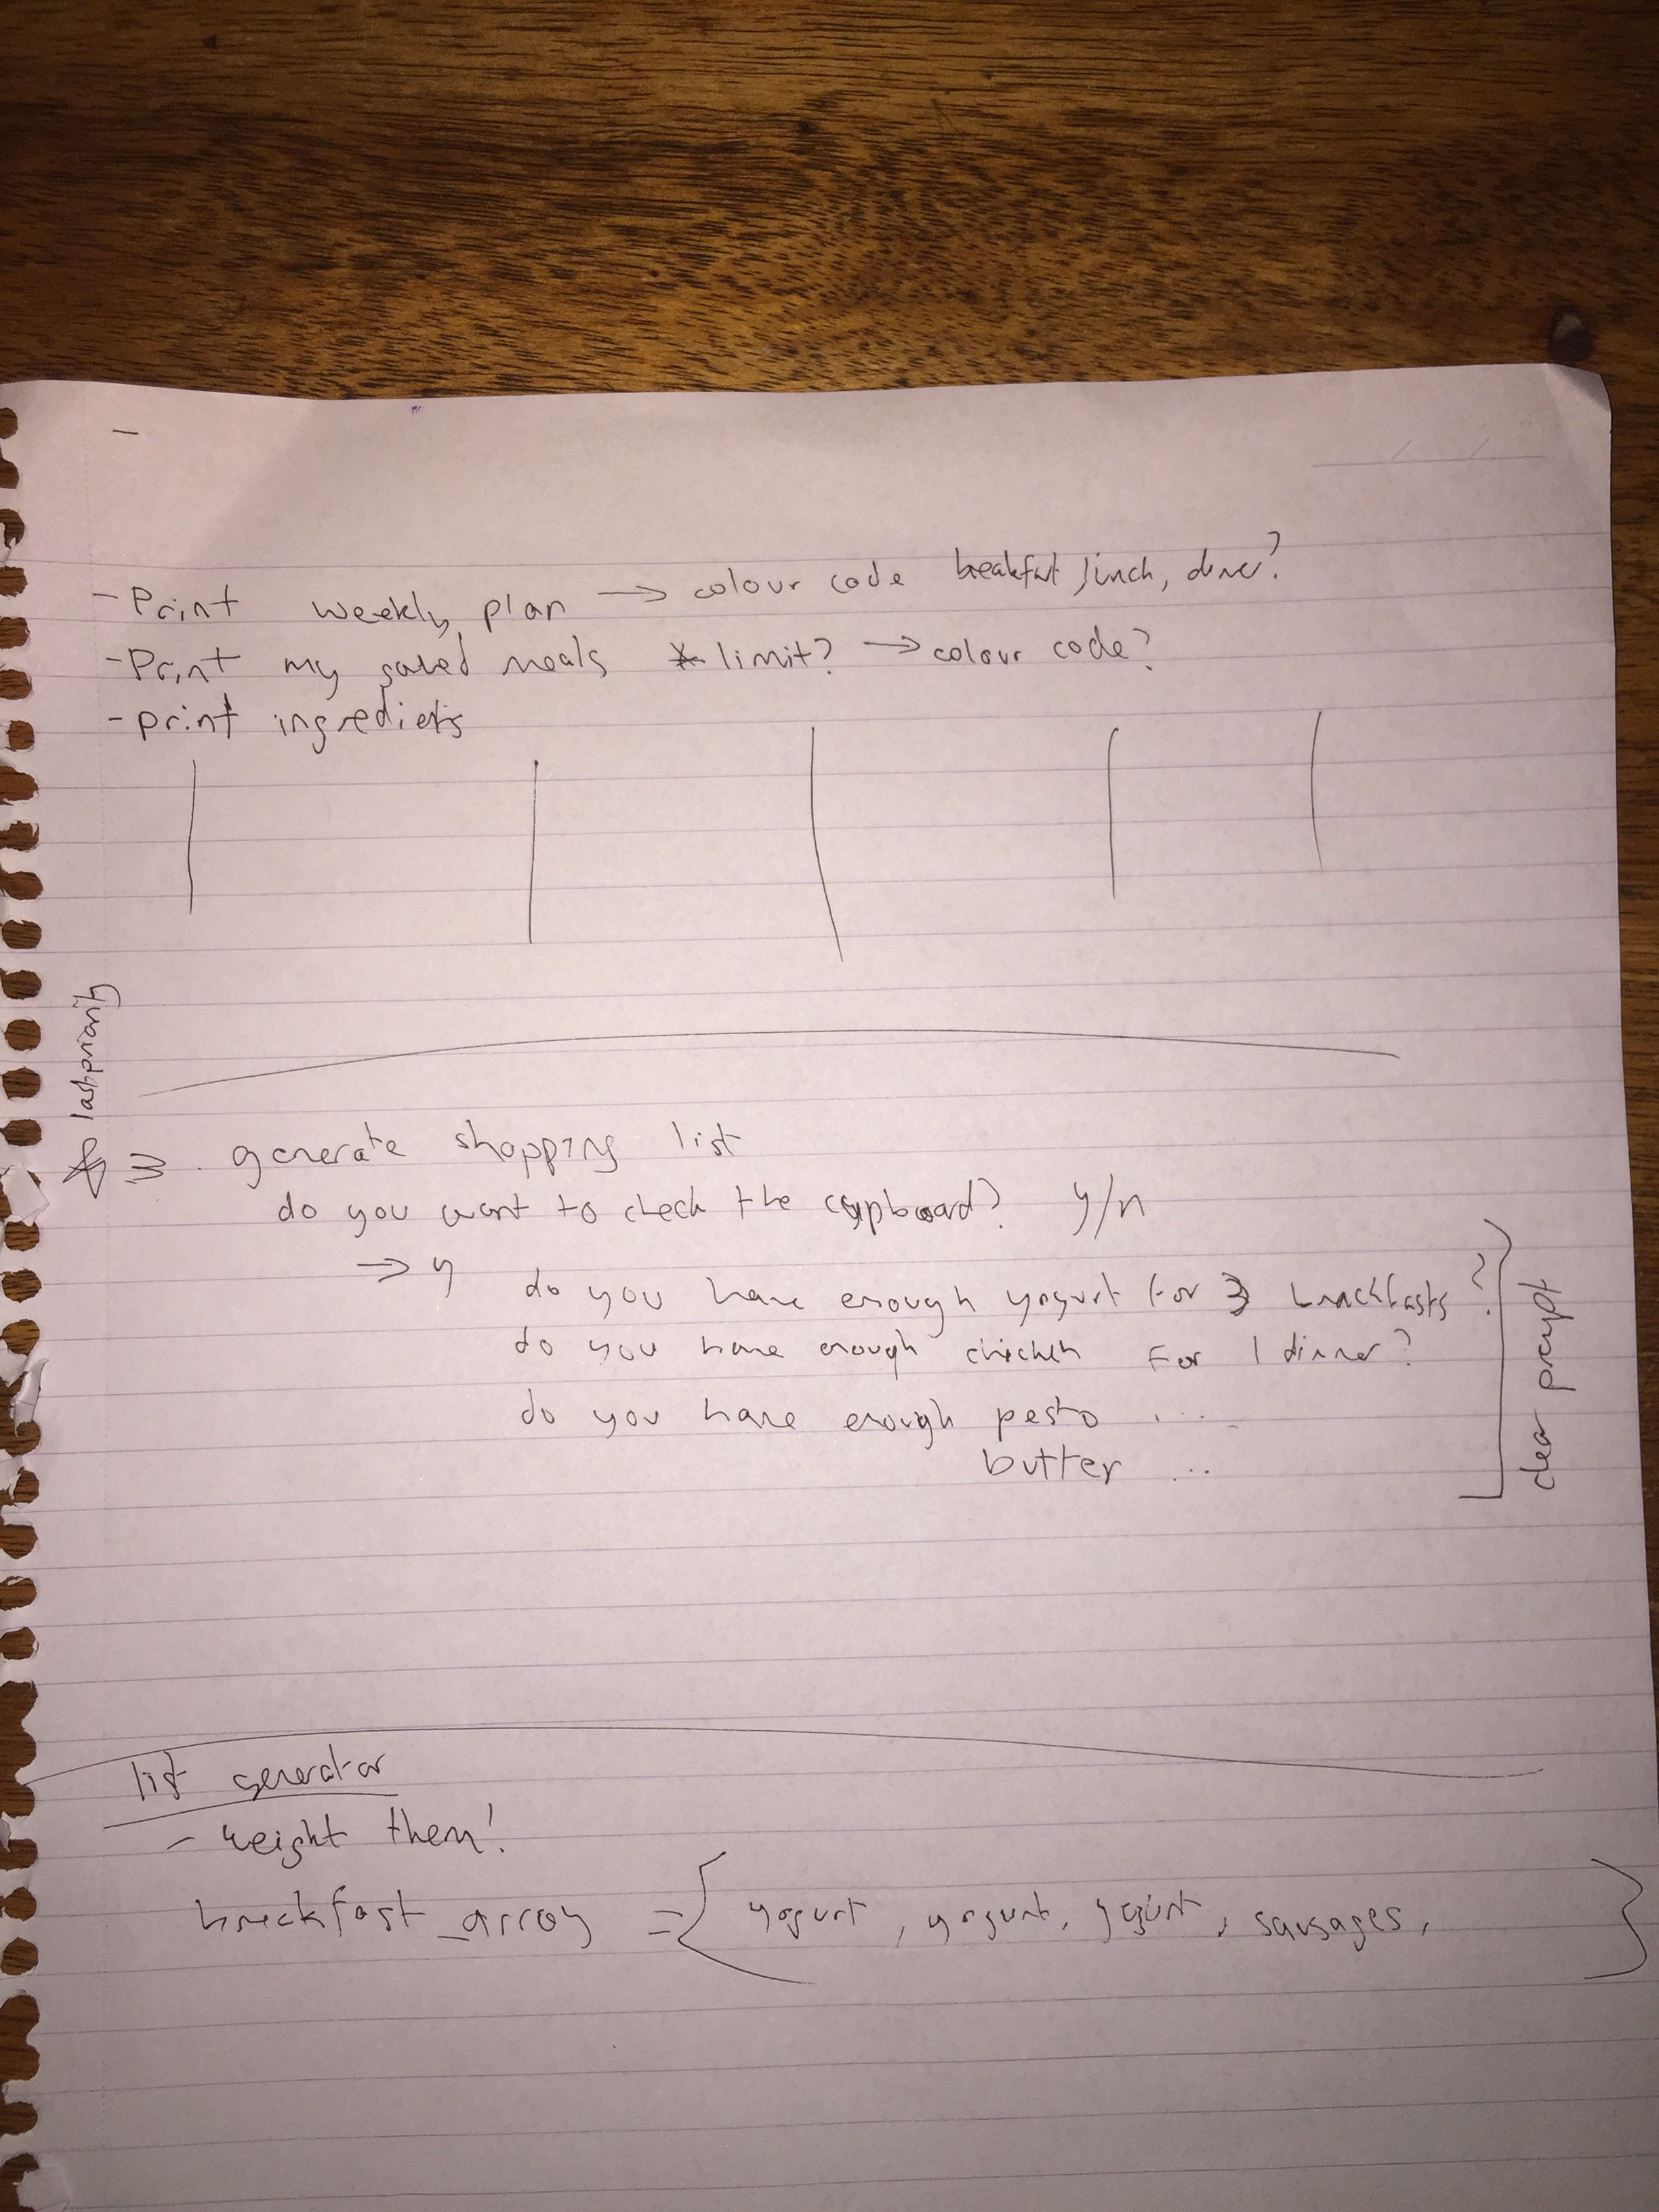 - Print weekly plan → colour code breakfast, lunch, dinner?
- Print my saved meals * limit? → colour code?
- print ingredients
last priority
generate shopping list
do you want to check the cupboard? y/n
→ y
do you have enough yogurt for 3 breakfasts?
do you have enough chicken for 1 dinner?
do you have enough pesto ....
butter ...
clear prompt
list generator
- weight them!
breakfast_array = { yogurt, yogurt, yogurt, sausages, }